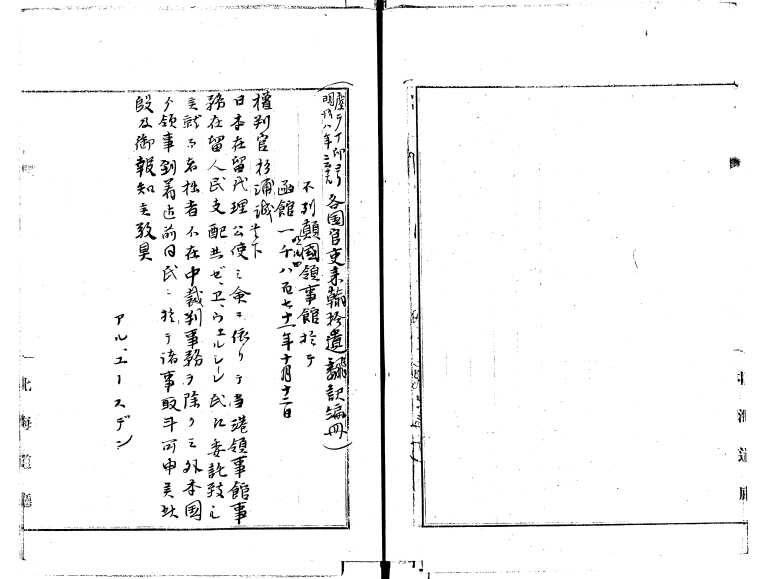 各国官吏来翰拾遺 飜訳編冊)
不列顛國領事館於テ
函館一千八百七十一年十月十二日
權判官杉浦誠貴下
日本在留代理公使之命ニ依リテ当港領事館事
務在留人民支配共ゼ、ヱ、ウェルシーレ氏江委託致し
候就而者拙者不在中裁判事務ヲ除ク之外本國
ゟ領事到着迄前同氏ニ於テ諸事取斗可申候此
段及御報知候敬具
アル、ユースデン
北海道廳
北海道廳